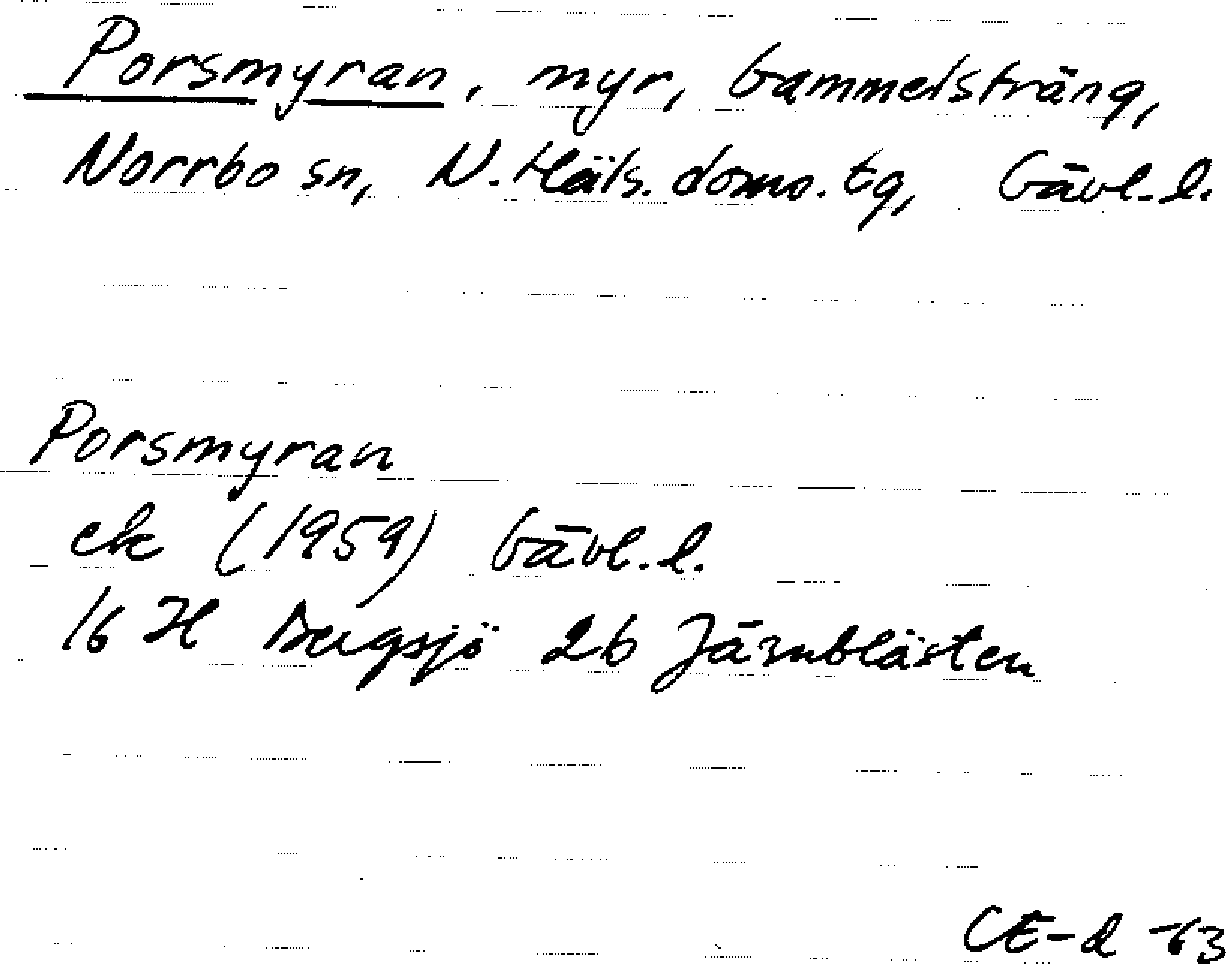 Porsmyran, myr, Gammelsträng,
Norrbo sn, N. Häls. doms. tg, Gävl. l.
Porsmyran
ek (1959) Gävl. l.
16 H Bergsjö 2b Järnblästen
CE-d -63